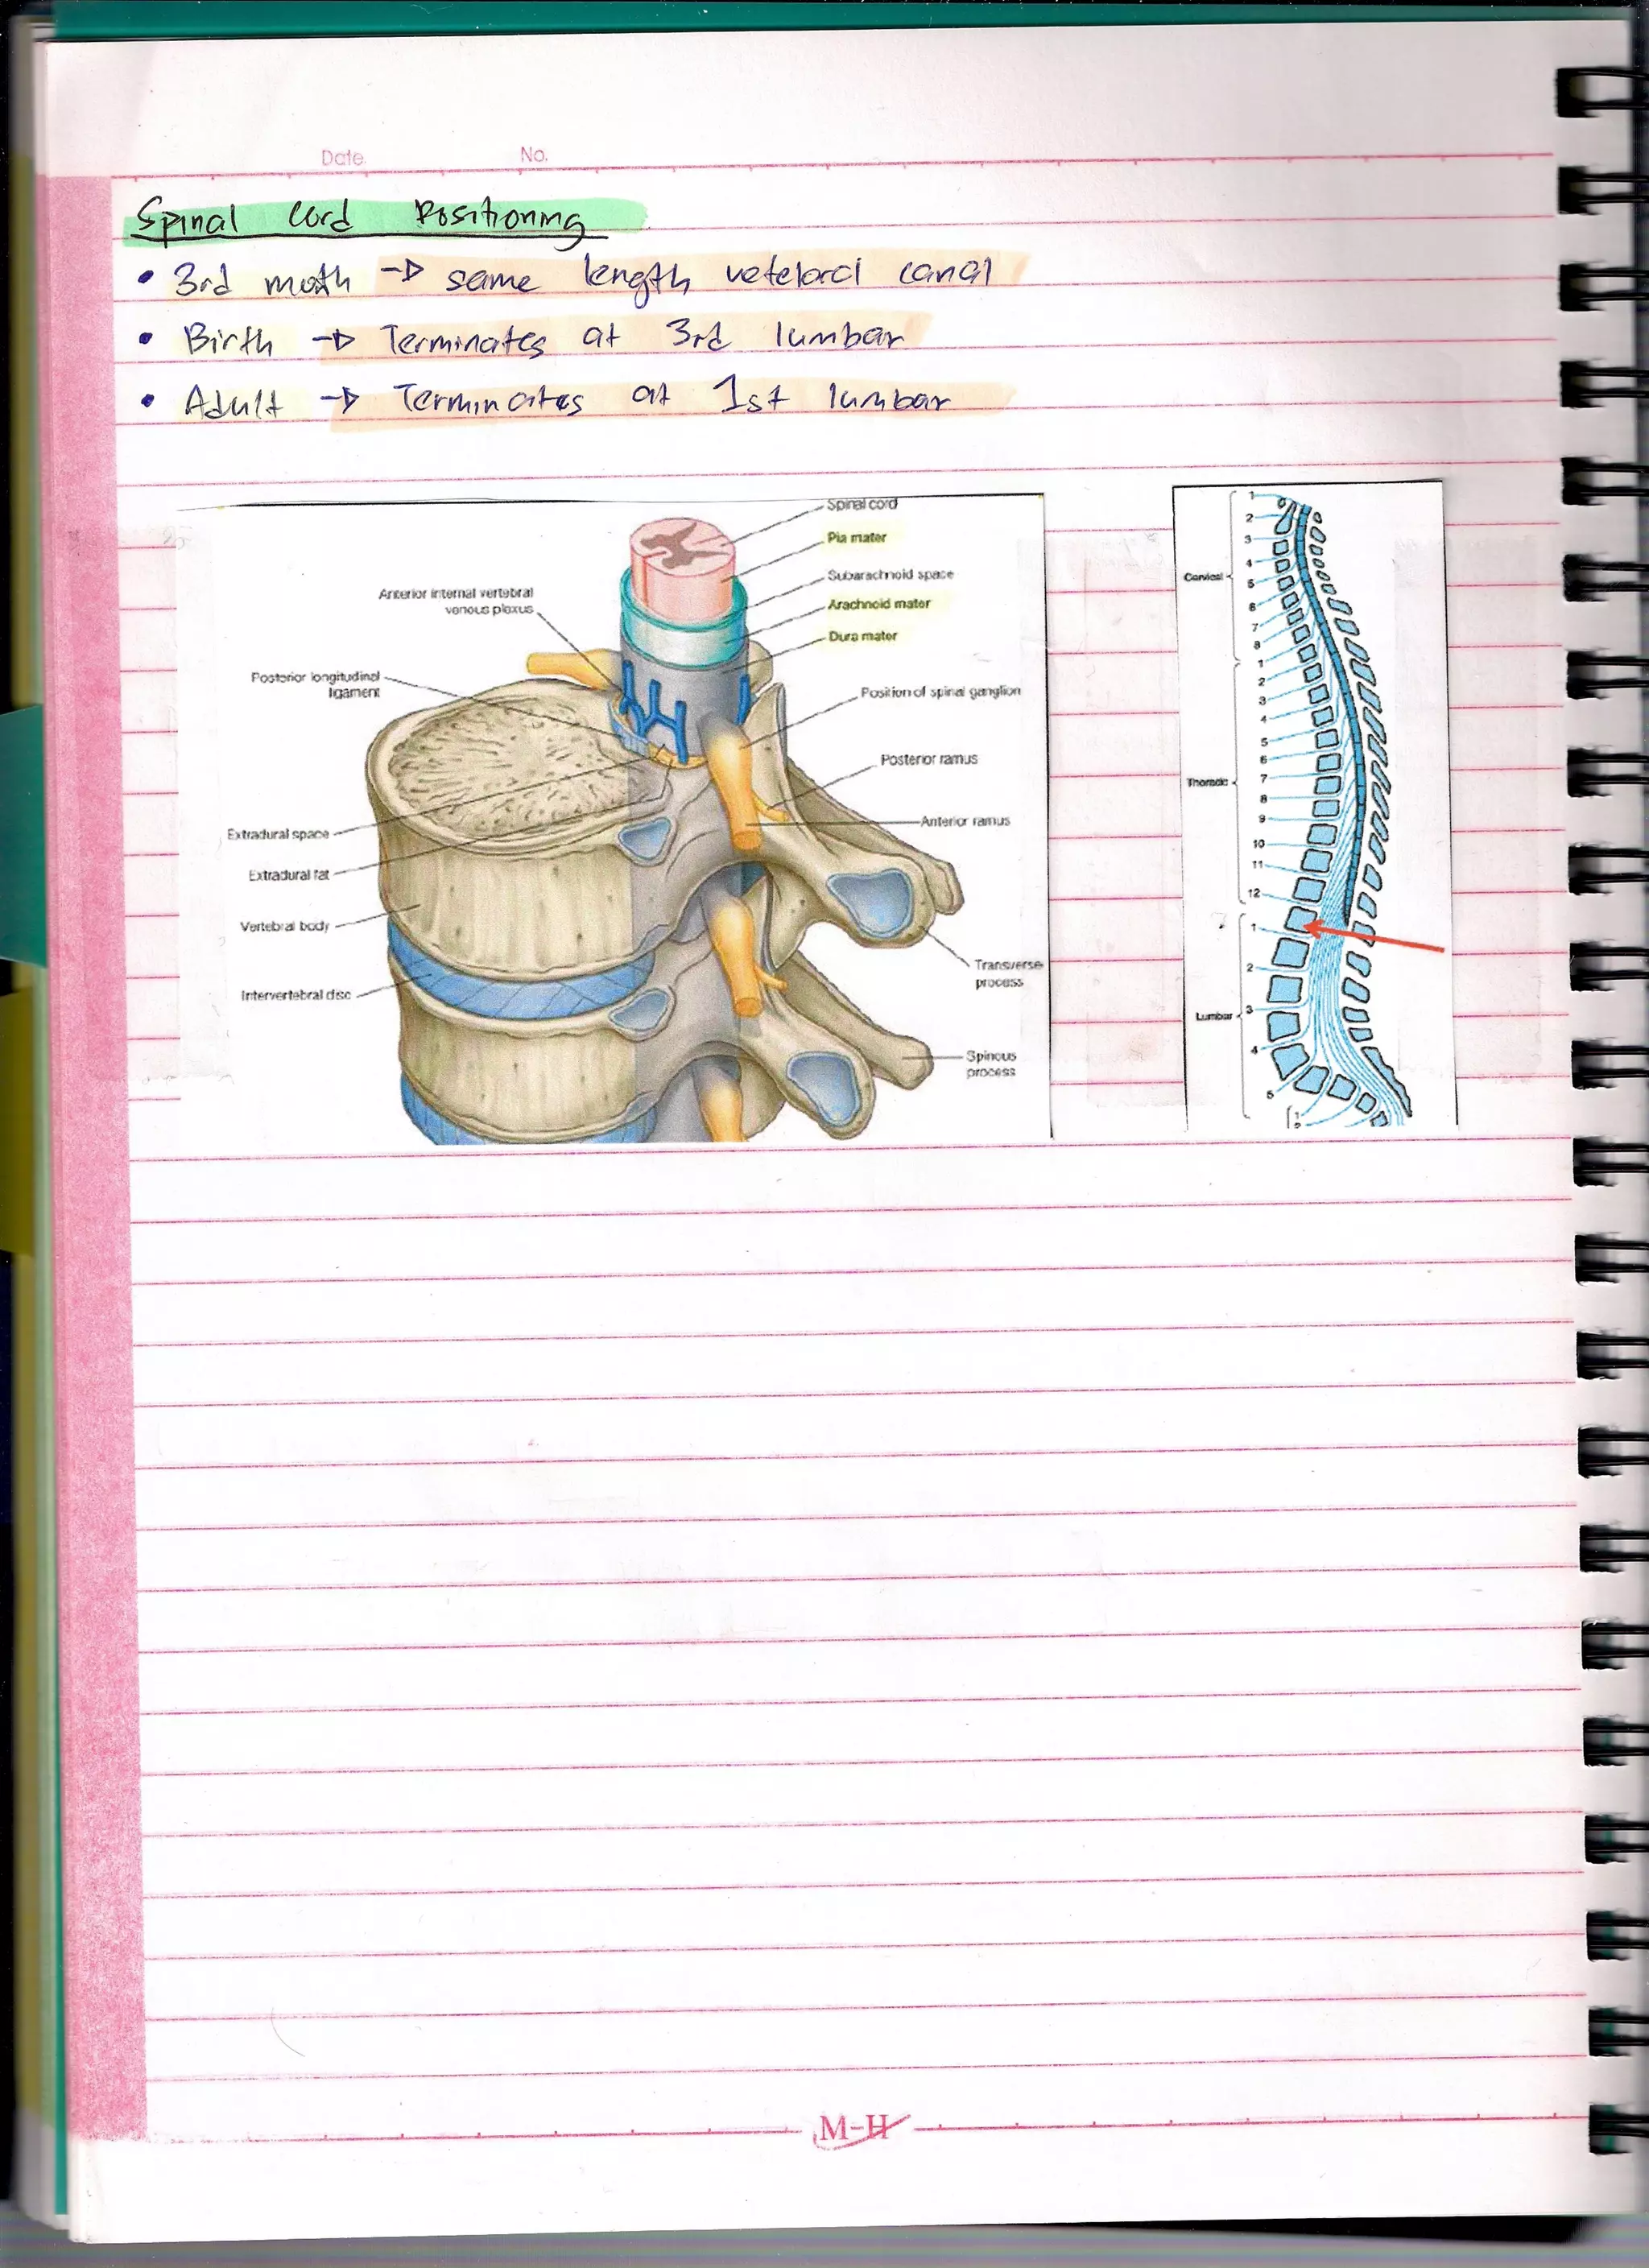 Date. No.
Spinal cord Positioning
• 3rd moth → same length vetelarcl canal
• Birth → Terminates at 3rd lumbar
• Adult → Terminates at 1st lumbar
Spinal cord
Pia mater
Subarachnoid space
Arachnoid mater
Dura mater
Position of spinal ganglion
Posterior ramus
Anterior ramus
Transverse
process
Spinous
process
Anterior internal vertebral
venous plexus
Posterior longitudinal
ligament
Extradural space
Extradural fat
Vertebral body
Intervertebral disc
Cervical
1
2
3
4
5
6
7
8
Thoracic
1
2
3
4
5
6
7
8
9
10
11
12
Lumbar
1
2
3
4
5
1
M-H